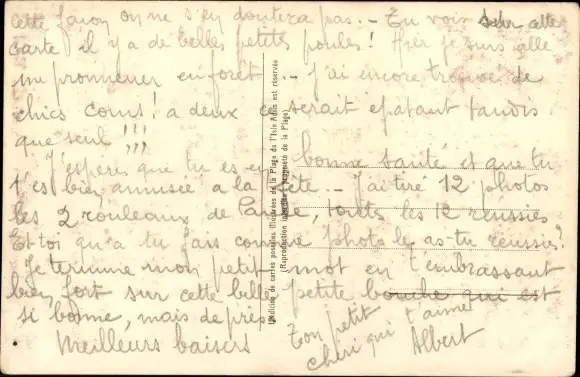 cette façon on ne s'en doutera pas. - Tu vois sur cette
carte il y a de belles petites poules! Hier je suis allé
me promener en forêt. - J'ai encore trouvé de
chics coins! a deux ce serait epatant tandis
que seul!!!
J'espère que tu es en bonne santé et que tu
t'es bien amusée a la fête. - J'ai tiré 12 photos
les 2 rouleaux de, toutes les 12 réussies
Et toi qu'a tu fais comme photo les as-tu réussies?
Je termine mon petit mot en t'embrassant
bien fort sur cette belle petite bouche qui est
si bonne, mais de près
Meilleurs baisers
Ton petit
chéri qui t'aime
Albert
Edition de cartes postales illustrées de la Plage de l'Isle Adam est réservée
(Reproduction interdite de la Plage)